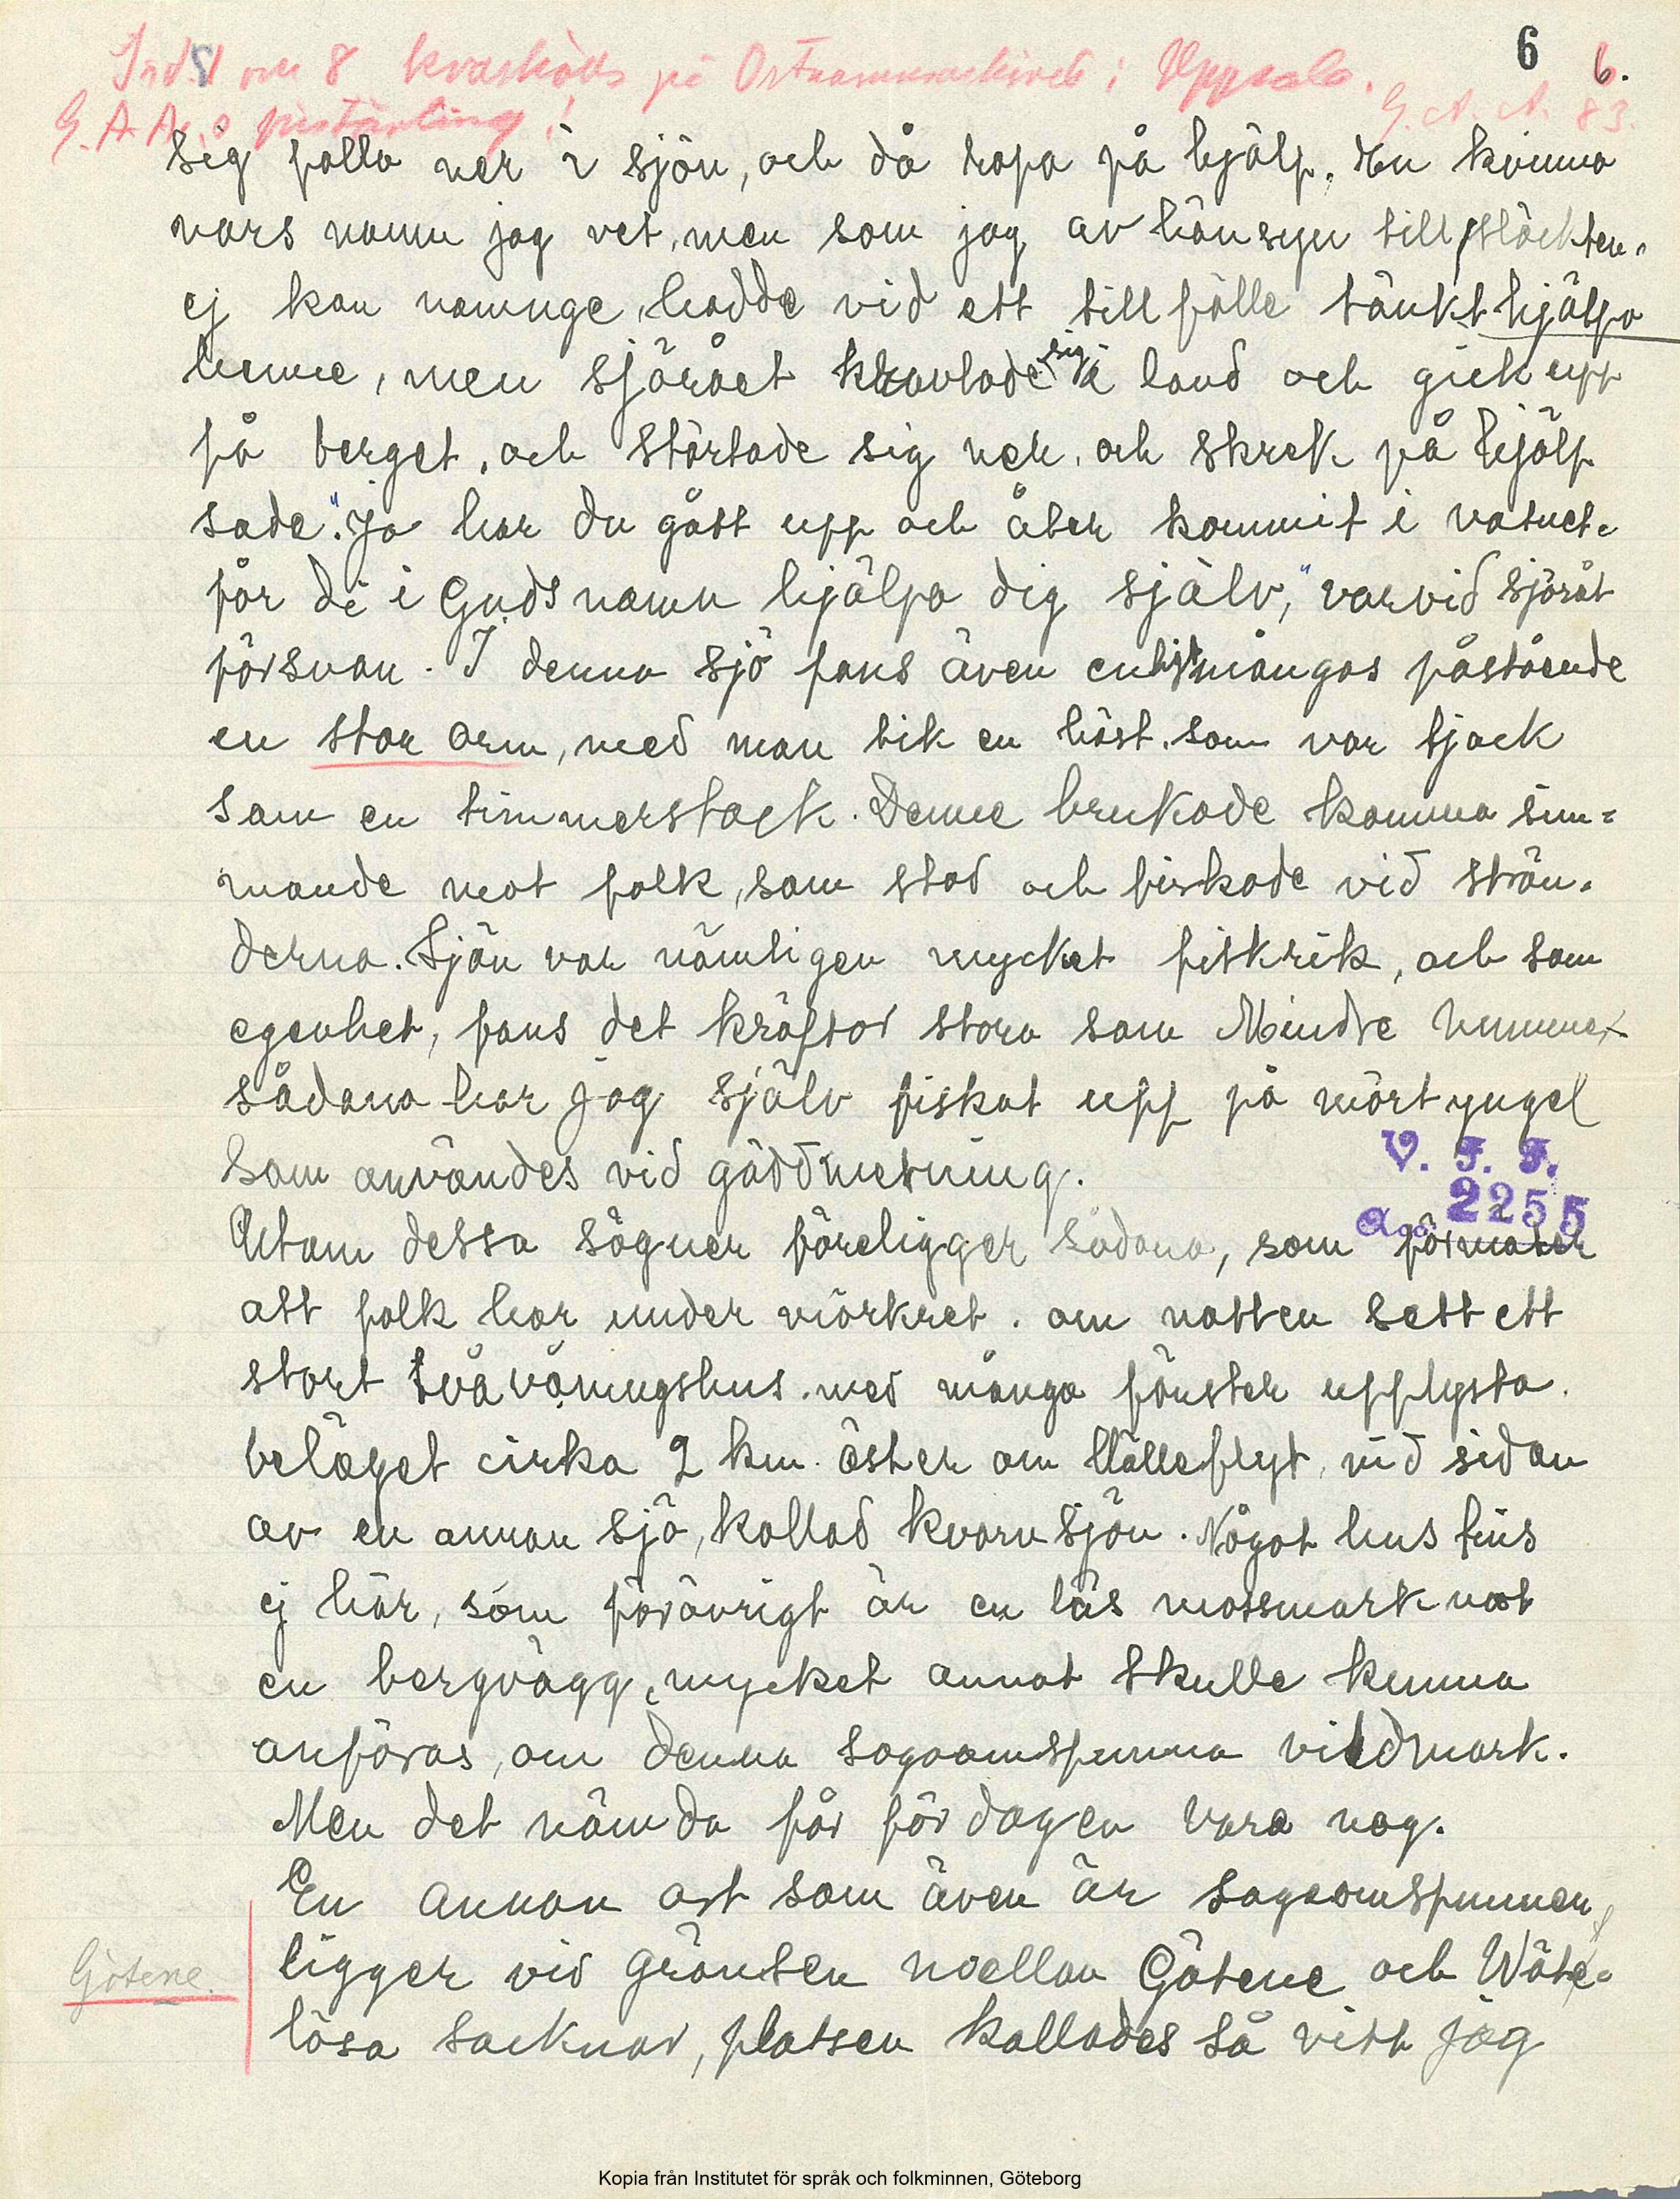 6 6.
Ind. 1 om 8 kvarhålls på Ortnamnsarkivet i Uppsala.
G. A. A:s
G. A. A. 83.
sig falla ner i sjön, och då ropa på hjälp. En kvinna
vars namn jag vet, men som jag av hänsyn till släkten.
ej kan namnge, hadde vid ett tillfälle tänkt hjälpa
henne, men sjörået kravlade sig i land och gick upp
på berget, och störtade sig ner, och skrek på hjälp
sade "Ja har du gått upp och åter kommit i vatnet.
för di i Guds namn hjälpa dig själv," varvid sjöråt
försvan. I denna sjö fans även enligt mångas påstående
en stor orm, med man lik en häst. som var tjock
som en timmerstock. Denne brukade komma sim=
mande mot folk, som stod och fiskade vid strän=
derna. Sjön var nämligen mycket fiskrik, och som
egenhet, fans det kräftor stora som Mindre hummer
sådana har jag själv fiskat upp på mörtyngel
som användes vid gäddmetning.
V. F. F.
Acc 2255
Utom dessa sägner föreligger sådana, som förmäler
att folk har under mörkret. om natten sett ett
stort tvåvåningshus. med många fönster upplysta.
beläget cirka 2 km. öster om Hålleflyt, vid sidan
av en annan sjö, kallad kvarnsjön. Något hus fins
ej här, som förövrigt är en lös mossmark mot
en bergvägg, mycket annat skulle kunna
anföras, om denna sagoomspunna vildmark.
Men det nämda får för dagen vara nog.
En annan ort som även är sagoomspunnen
Götene.
ligger vid gränsen mellan Götene och Wäte=
lösa socknar, platsen kallades så vitt jag
Kopia från Institutet för språk och folkminnen, Göteborg